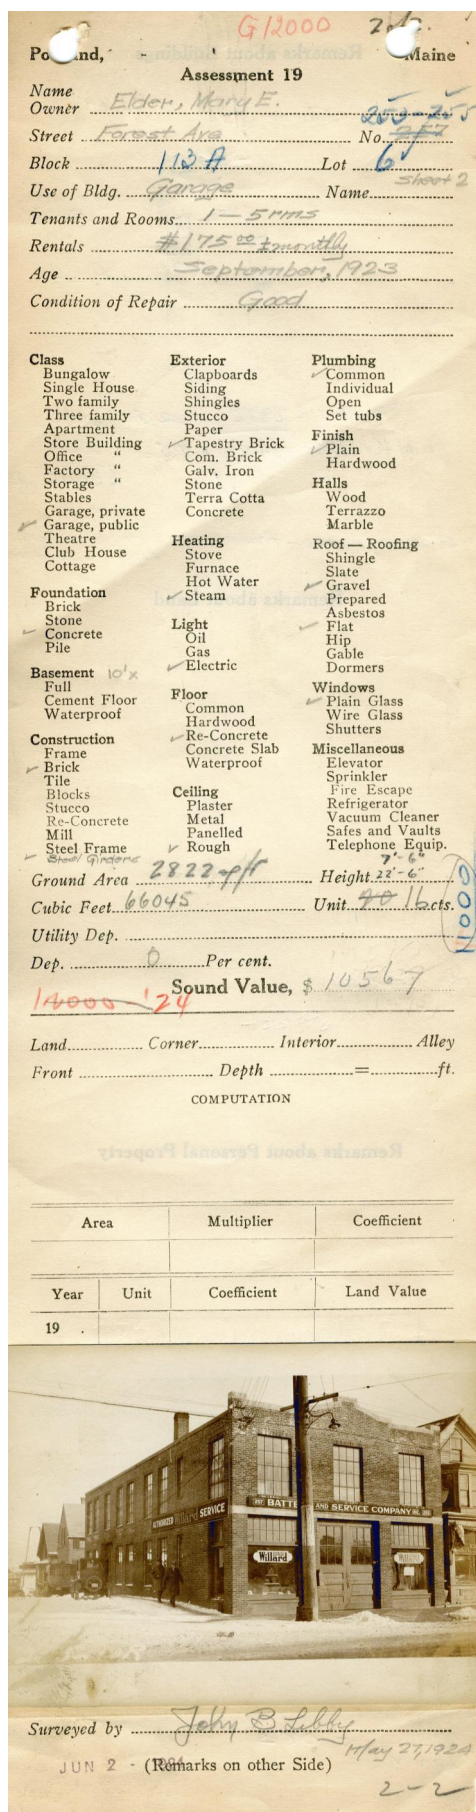 G 12000
Portland, Maine
Assessment 19
Name
Owner Elder, Mary E.
253-255
Street Forest Ave No. 257
Block 113 A Lot 6
Sheet 2
Use of Bldg. Garage Name
Tenants and Rooms 1 — 5 rms
Rentals #175 00 monthly
Age September, 1923
Condition of Repair Good
Class
Bungalow
Single House
Two family
Three family
Apartment
Store Building
Office "
Factory "
Storage "
Stables
Garage, private
✓ Garage, public
Theatre
Club House
Cottage
Foundation
Brick
Stone
✓ Concrete
Pile
Basement 10'x
Full
Cement Floor
Waterproof
Construction
Frame
✓ Brick
Tile
Blocks
Stucco
Re-Concrete
Mill
Steel Frame
✓ Steel Girders
Exterior
Clapboards
Siding
Shingles
Stucco
Paper
✓ Tapestry Brick
Com. Brick
Galv. Iron
Stone
Terra Cotta
Concrete
Heating
Stove
Furnace
Hot Water
✓ Steam
Light
Oil
Gas
✓ Electric
Floor
Common
Hardwood
✓ Re-Concrete
Concrete Slab
Waterproof
Ceiling
Plaster
Metal
Panelled
✓ Rough
Plumbing
✓ Common
Individual
Open
Set tubs
Finish
✓ Plain
Hardwood
Halls
Wood
Terrazzo
Marble
Roof — Roofing
Shingle
Slate
✓ Gravel
Prepared
Asbestos
✓ Flat
Hip
Gable
Dormers
Windows
✓ Plain Glass
Wire Glass
Shutters
Miscellaneous
Elevator
Sprinkler
Fire Escape
Refrigerator
Vacuum Cleaner
Safes and Vaults
Telephone Equip.
7'-6"
Ground Area 2822 Height 22'-6"
Cubic Feet 66045 Unit 20 16 cts.
11000
Utility Dep.
Dep. 0 Per cent.
Sound Value, $ 10567
'24
Land Corner Interior Alley
Front Depth = ft.
COMPUTATION
Area Multiplier Coefficient
Year Unit Coefficient Land Value
19
257 BATTE AND SERVICE COMPANY
AUTHORIZED Willard SERVICE
Willard
Willard
Surveyed by John B Libby
May 27, 1924
JUN 2 - 1924
(Remarks on other Side)
2-2